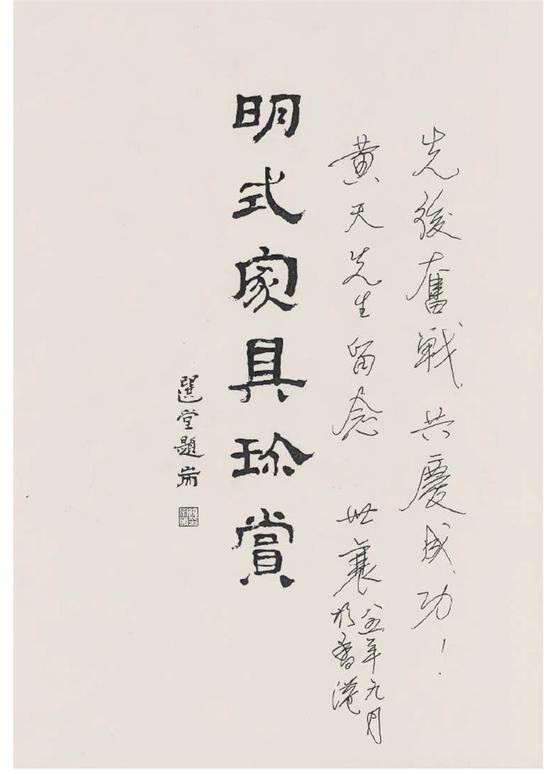 先後奮戰,共慶成功!
黄天先生留念 世襄
八五年九月
於香港
明式家具珎賞
選堂題耑